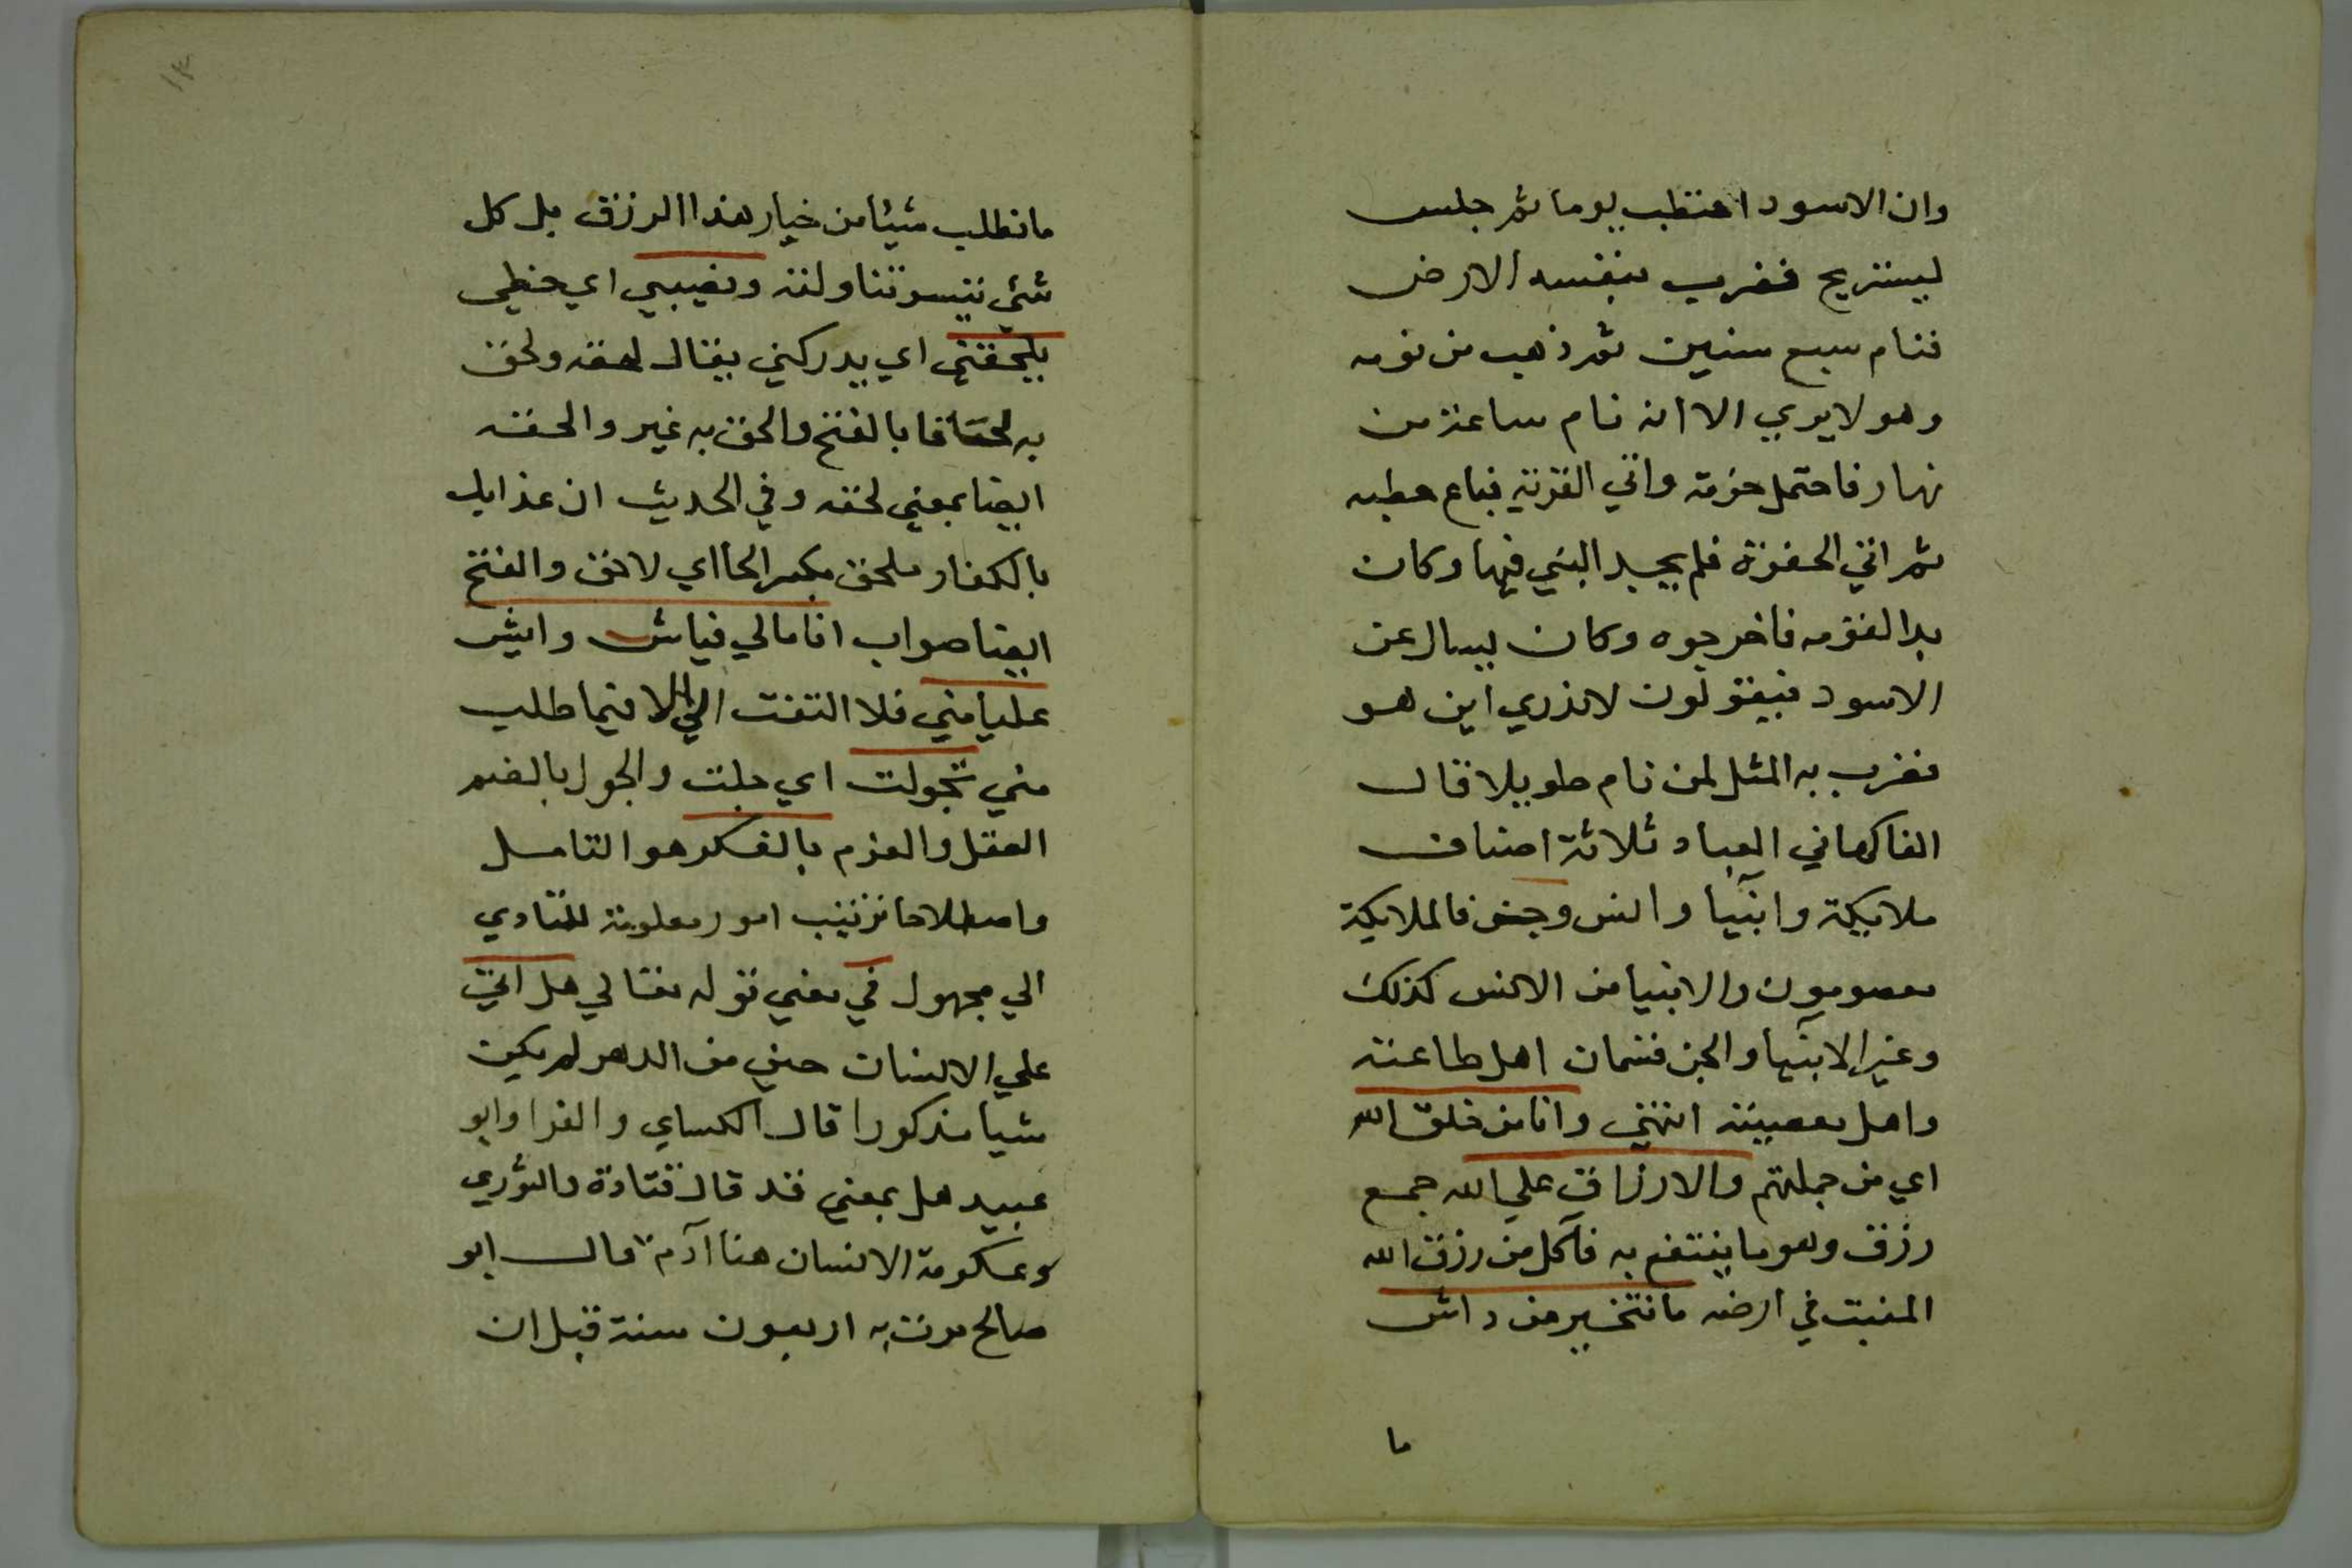 وان الاسود احتطب يوما ثم جلس
ليستريح فضرب بنفسه الارض
فنام سبع سنين ثم ذهب من نومه
وهو لا يري الا انه نام ساعة من
نهار فاحتمل حزمة واتي القرية فباع حطبه
ثم اتي الحفرة فلم يجد النبي فيها وكان
بدا لقومه فاخرجوه وكان يسال عن
الاسود فيقولون لا ندري اين هو
فضرب به المثل لمن نام طويلا قال
الفاكهاني العباد ثلاثة اصناف
ملايكة وانبيا وانس وجن فالملايكة
معصومون والانبيا من الانس كذلك
وغير الانبيا والجن قسمان اهل طاعته
واهل معصيته انتهي وانا من خلق الله
اي من جملتهم والارزاق علي الله جمع
رزق وهو ما ينتفع به فآكل من رزق الله
المنبت في ارضه ما نتخير من داش
ما
١٣
ما نطلب شيئا من خيار هذا الرزق بل كل
شئي تيسر تناولته ونصيبي اي حظي
يلحقني اي يدركني يقال لحقه ولحق
به لحاقا بالفتح والحق به غير والحقه
ايضا بمعني لحقه وفي الحديث ان عذابك
بالكفار ملحق بكسر الحا اي لاحق والفتح
ايضا صواب انا مالي فياش وايش
عليا مني فلا التفت الي الا فيما طلب
مني تجولت اي جلت والجول بالضم
العقل والعزم بالفكر هو التامل
واصطلاحا ترتيب امور معلومة للتادي
الي مجهول في معني قوله تعالي هل اتي
علي الانسان حين من الدهر لم يكن
شيا مذكورا قال الكساي والفرا وابو
عبيد هل بمعني قد قال قتادة والثوري
وعكرمة الانسان هنا آدم قال ابو
صالح مرت به اربعون سنة قبل ان